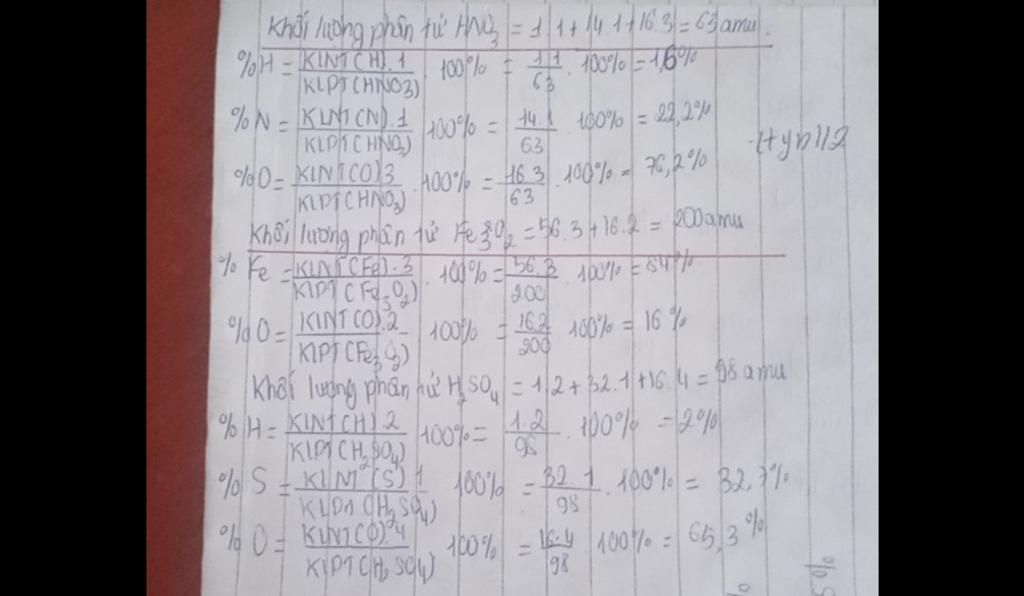 Khối lượng phân tử HNO3 = 1.1+14.1+16.3 = 63 amu.
%H = KLNT(H).1 / KLPT(HNO3) . 100% = 1.1 / 63 . 100% = 1,6%
%N = KLNT(N).1 / KLPT(HNO3) . 100% = 14.1 / 63 . 100% = 22,2%
%O = KLNT(O)3 / KLPT(HNO3) . 100% = 16.3 / 63 . 100% = 76,2%
Khối lượng phân tử Fe3O2 = 56.3+16.2 = 200amu
% Fe = KLNT(Fe).3 / KLPT(Fe3O2) . 100% = 56.3 / 200 . 100% = 84%
%O = KLNT(O).2 / KLPT(Fe3O2) 100% = 16.2 / 200 100% = 16%
Khối lượng phân tử H2SO4 = 1.2+32.1+16.4 = 98amu
%H = KLNT(H).2 / KLPT(H2SO4) 100% = 1.2 / 98 . 100% = 2%
%S = KLNT(S).1 / KLPT(H2SO4) 100% = 32.1 / 98 . 100% = 32,7%
%O = KLNT(O).4 / KLPT(H2SO4) 100% = 16.4 / 98 100% = 65,3%